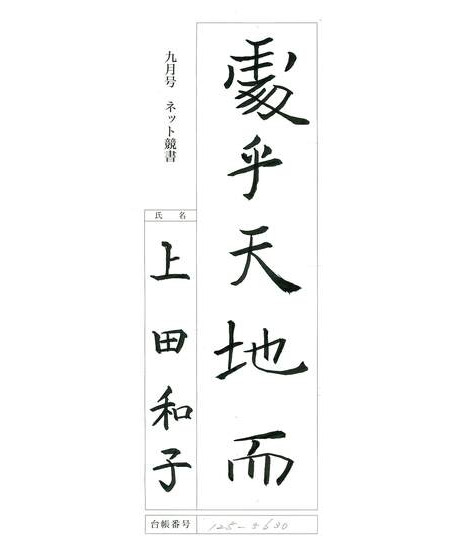 處乎天地而
九月号　ネット競書
氏名
上田和子
台帳番号